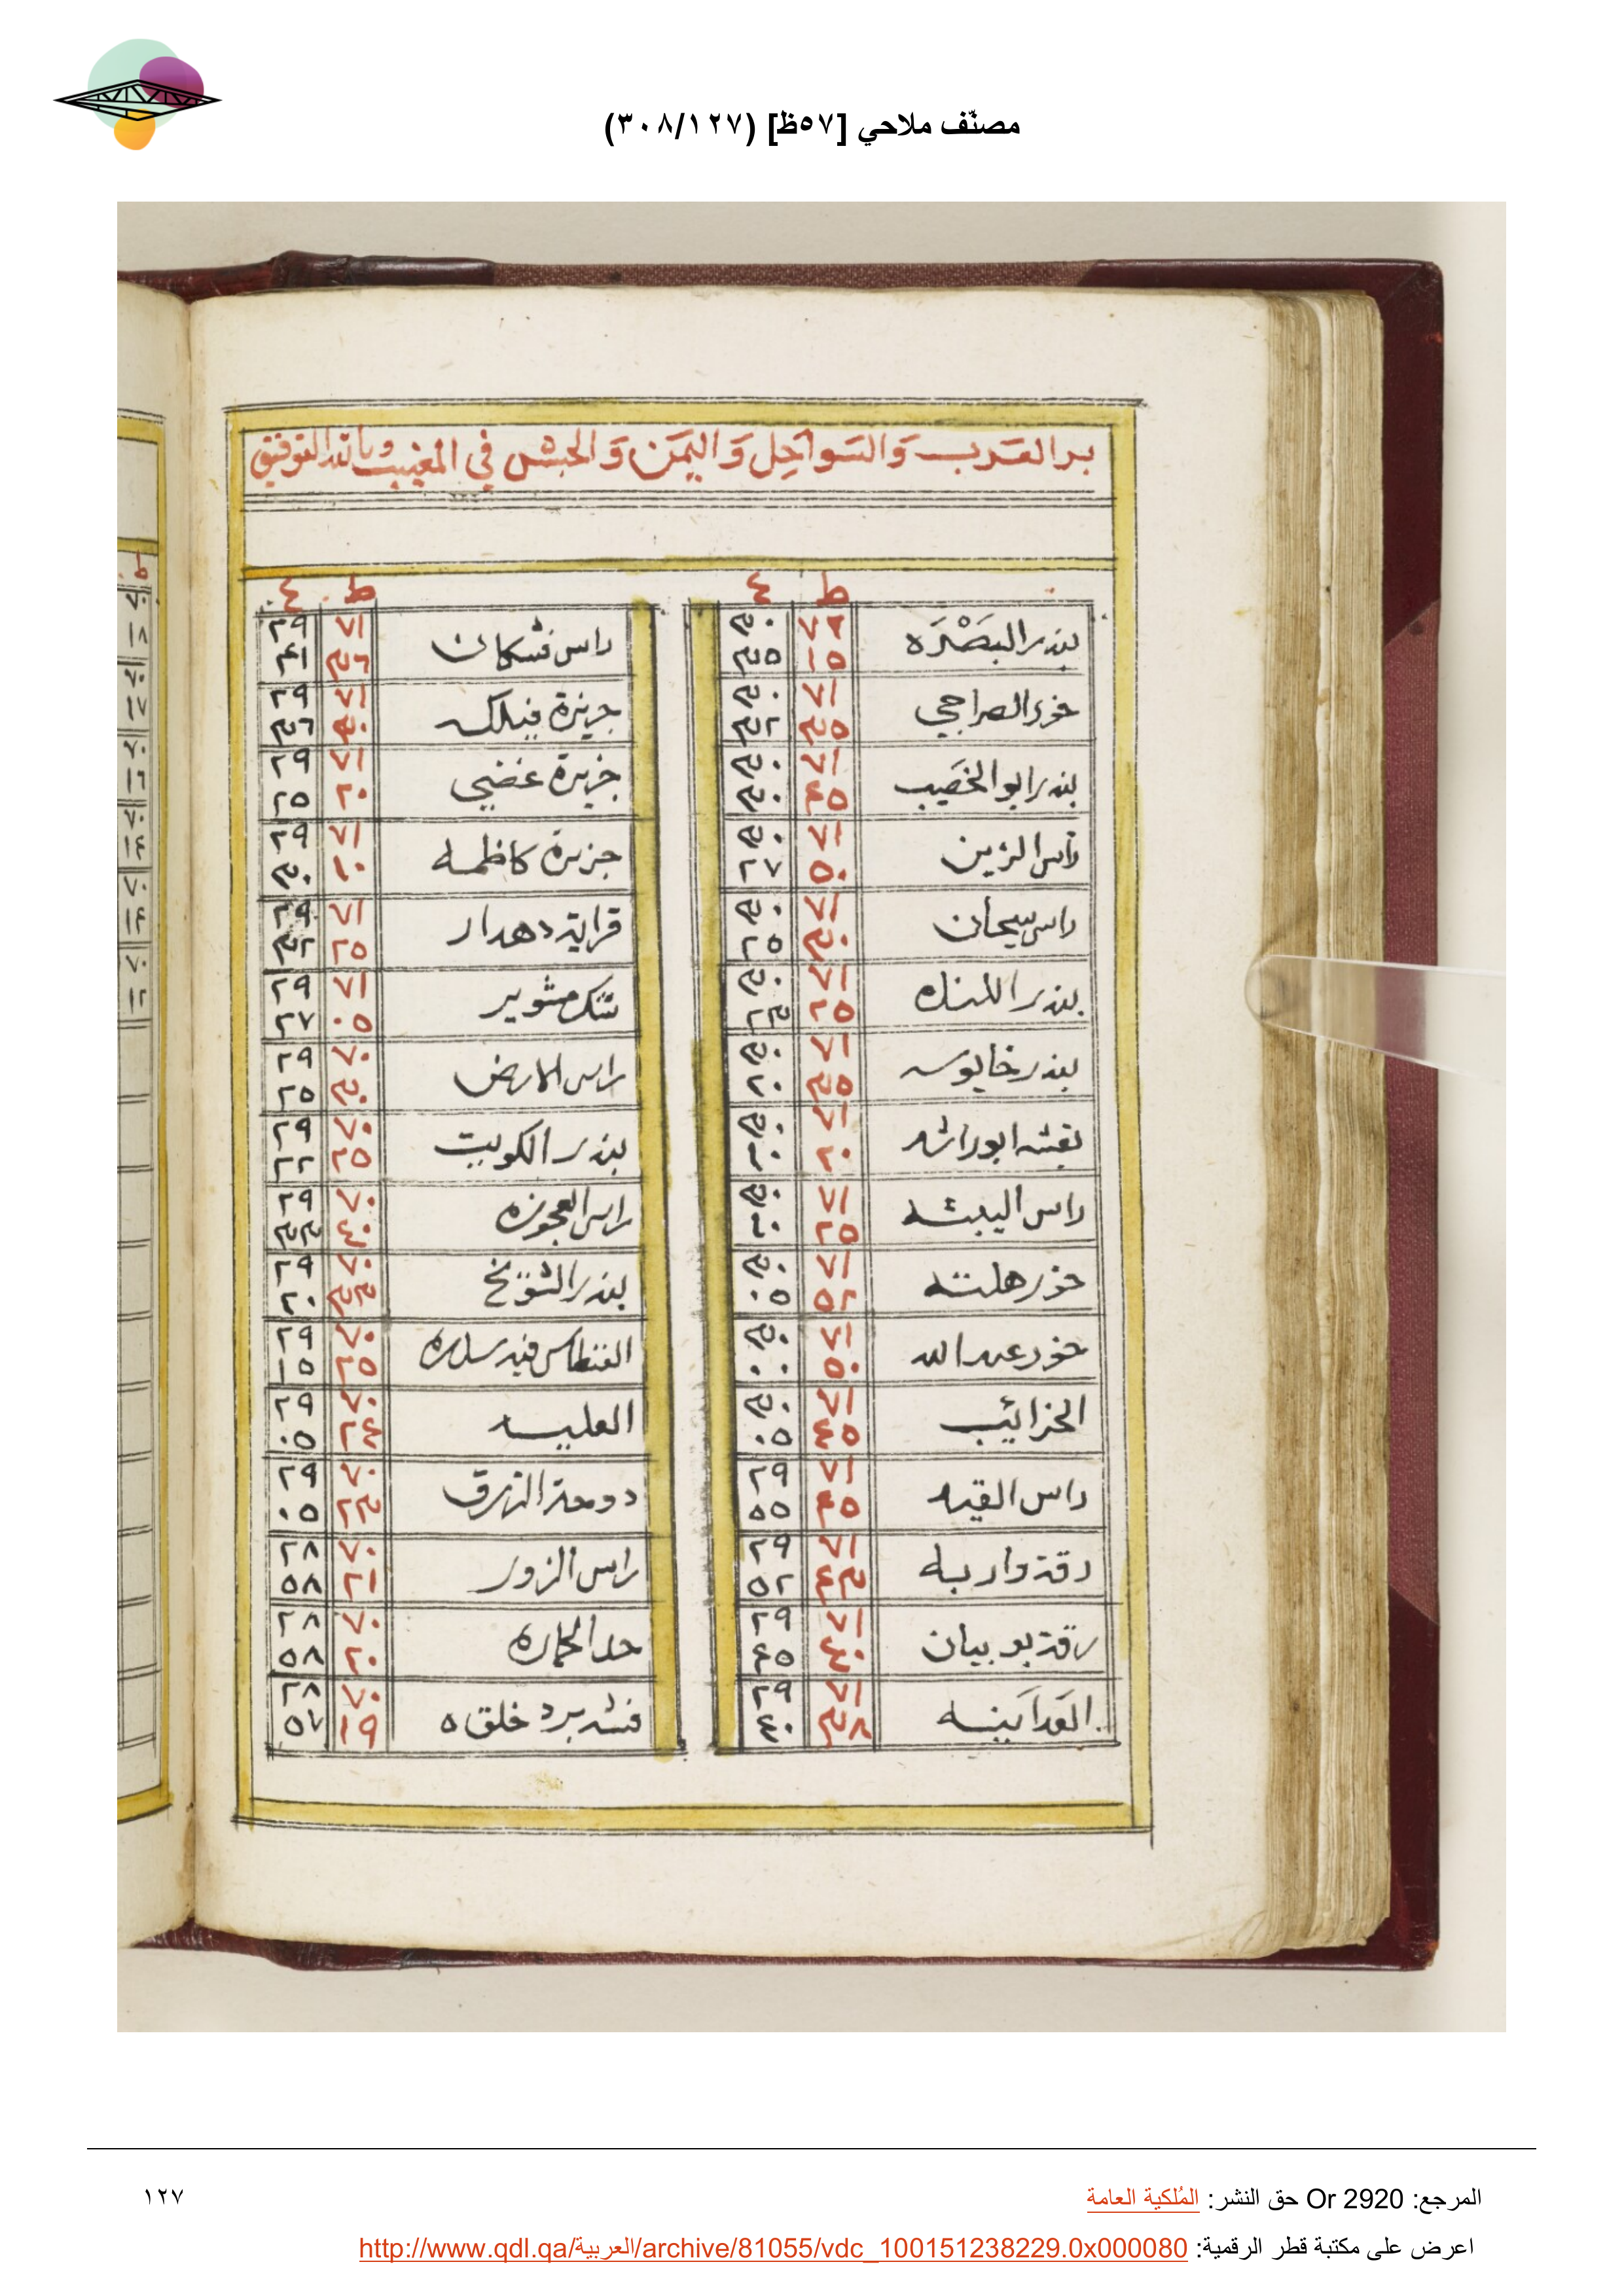 مصنّف ملاحي [٥٧ظ] (٣٠٨/١٢٧)
بر العرب والسواحل واليمن والحبش في المغيب وبالله التوفيق
ط ع
بندر البَصْرَه ٧٢ ١٥ ٣٠ ٣٥
خور الصراجي ٧١ ٣٥ ٣٠ ٣٢
بندر ابو الخصَيب ٧١ ٤٥ ٣٠ ٣٠
راس الزين ٧١ ٥٠ ٣٠ ٢٧
راس سيحان ٧١ ٣٠ ٣٠ ٢٥
بندر ٧١ ٢٥ ٣٠ ٢٣
بندر خابوس ٧١ ٣٥ ٣٠ ٢٠
ابوراشد ٧١ ٢٠ ٣٠ ١٠
راس البيشه ٧١ ٢٥ ٣٠ ١٠
خور ٧١ ٥٢ ٣٠ ٠٥
خور عبد الله ٧١ ٥٠ ٣٠ ٠٠
الخرائيب ٧١ ٤٥ ٣٠ ٠٥
راس القيد ٧١ ٤٥ ٢٩ ٥٥
رقة واربه ٧١ ٤٣ ٢٩ ٥٢
رقة بو بيان ٧١ ٤٠ ٢٩ ٤٥
٧١ ٣٨ ٢٩ ٤٠
ط ع
راس ٧١ ٣٦ ٢٩ ٤١
جزيرة فيلك ٧١ ٣٠ ٢٩ ٣٦
جزيرة غضي ٧١ ٢٠ ٢٩ ٢٥
جزيرة كاظمه ٧١ ١٠ ٢٩ ٣٠
قراية دهدار ٧١ ٢٥ ٢٩ ٣٢
شوير ٧١ ٠٥ ٢٩ ٢٧
راس الارض ٧٠ ٣٠ ٢٩ ٢٥
بندر الكويت ٧٠ ٢٥ ٢٩ ٢٢
راس العجوزه ٧٠ ٤٠ ٢٩ ٣٣
بندر الشويخ ٧٠ ٣٣ ٢٩ ٢٠
الفنطاس ٧٠ ٢٥ ٢٩ ١٥
العليسه ٧٠ ٢٤ ٢٩ ٠٥
دوحة الزرق ٧٠ ٢٣ ٢٩ ٠٥
راس الزور ٧٠ ٢١ ٢٨ ٥٨
حد الحماره ٧٠ ٢٠ ٢٨ ٥٨
فشد برد خلقه ٧٠ ١٩ ٢٨ ٥٧
المرجع: Or 2920 حق النشر: المُلكية العامة
١٢٧
اعرض على مكتبة قطر الرقمية: http://www.qdl.qa/العربية/archive/81055/vdc_100151238229.0x000080